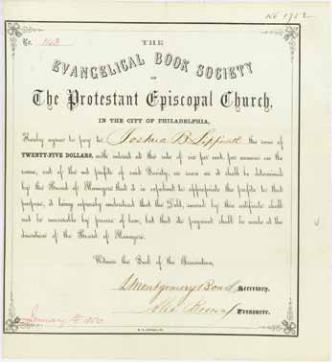 No 1752
No. 143
THE
EVANGELICAL BOOK SOCIETY
OF
The Protestant Episcopal Church,
IN THE CITY OF PHILADELPHIA,
Hereby agree to pay to Joshua B Lippincott the sum of
TWENTY-FIVE DOLLARS, with interest at the rate of six per cent. per annum on the
same, out of the net profits of said Society, as soon as it shall be determined
by the Board of Managers that it is expedient to appropriate the profits to that
purpose, it being expressly understood that the Debt, created by this certificate shall
not be recoverable by process of law, but that its payment shall be made at the
discretion of the Board of Managers.
Witness the Seal of the Association,
Montgomery Bond Secretary.
John Treasurer.
January